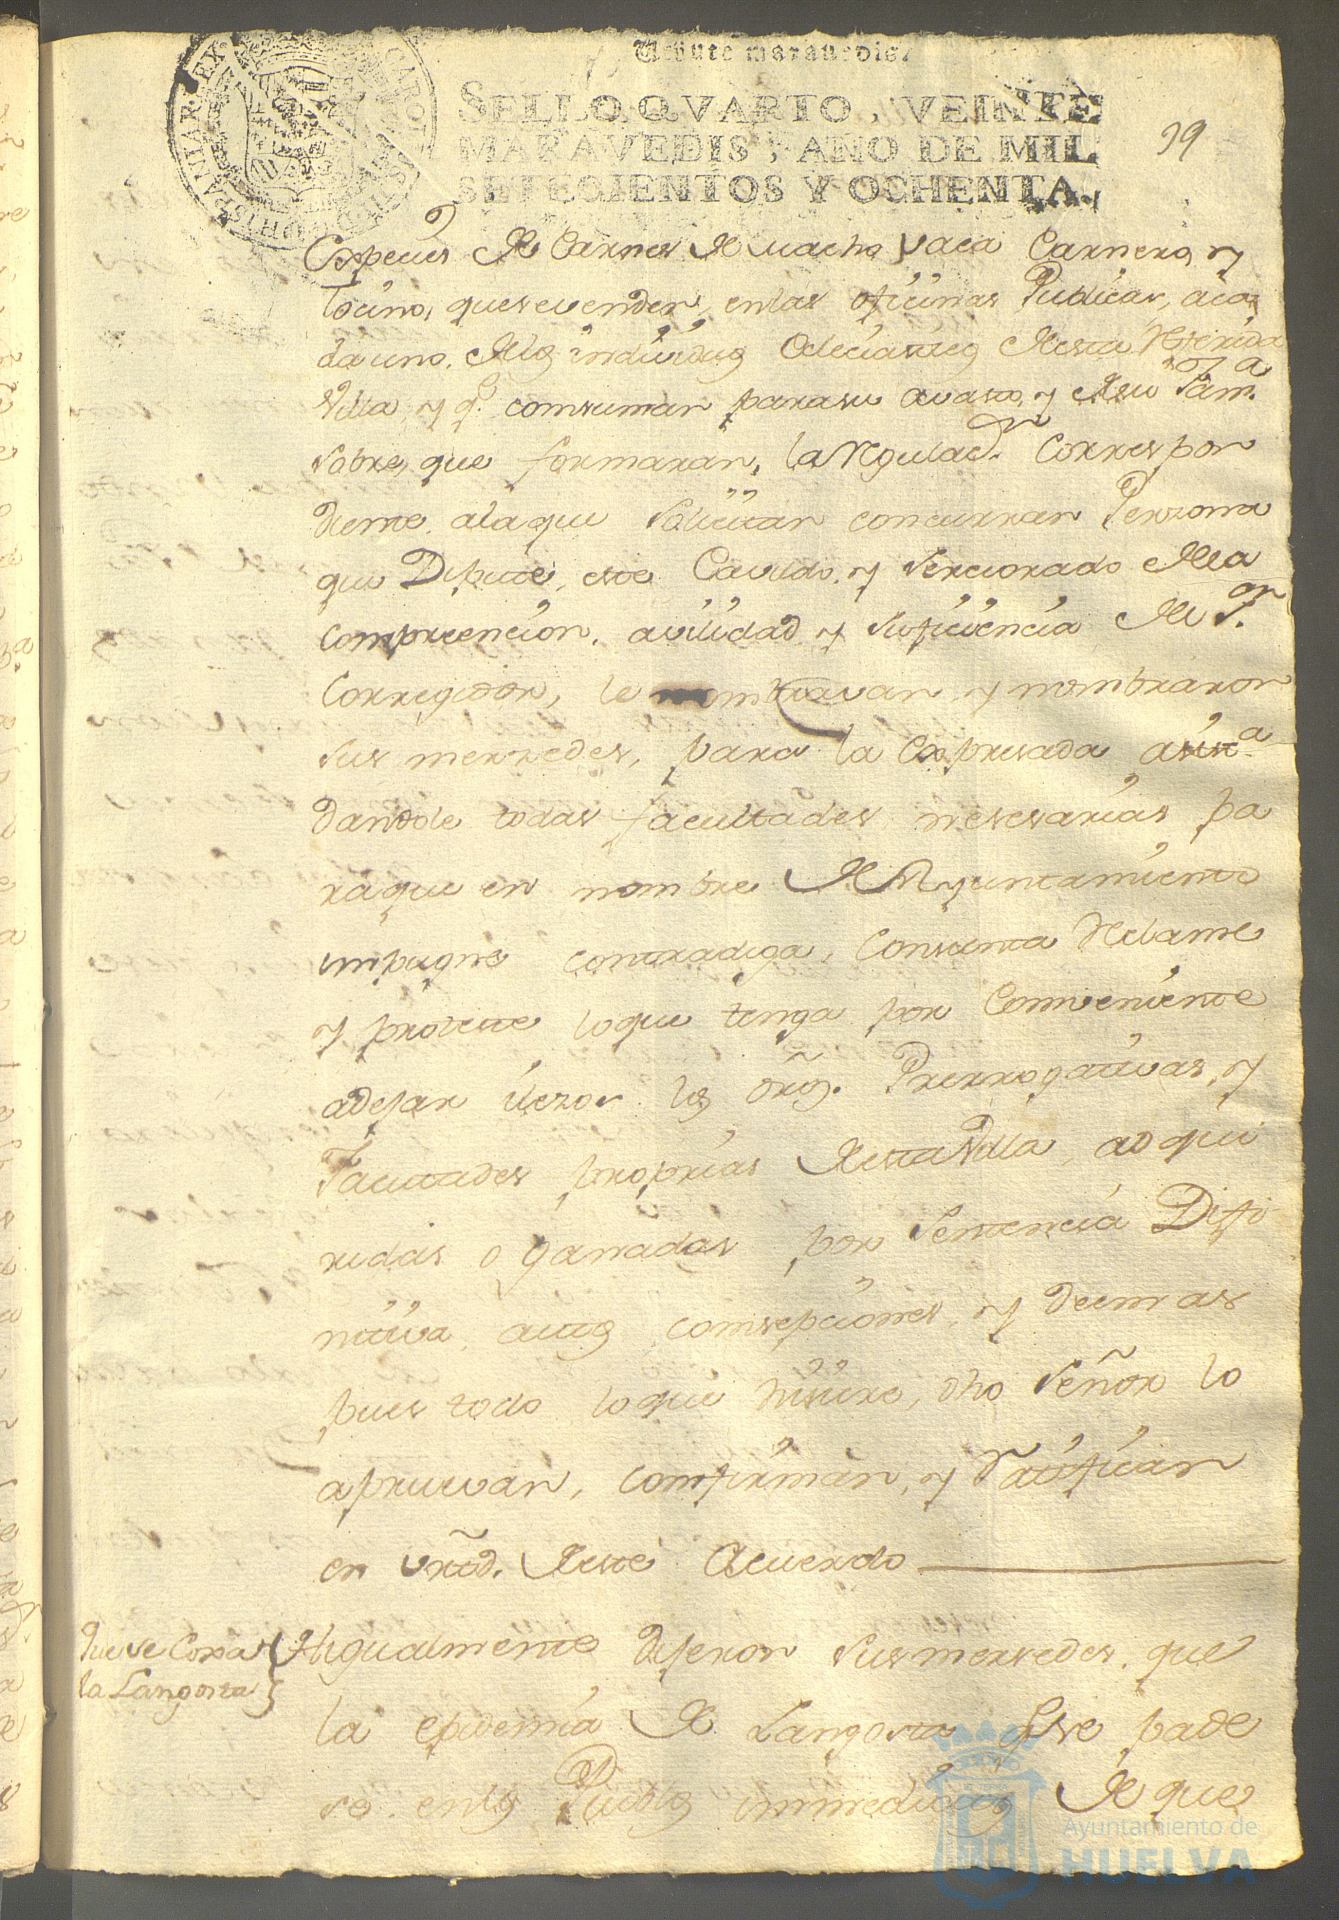 Veinte maravedis.
SELLO QVARTO, VEINTE
MARAVEDIS, AÑO DE MIL
SETECIENTOS Y OCHENTA.
39
HISPANIAR REX CAROL
Expecies de Carnes de macho, vaca Carnero, y
tocino, que se venden, en las oficinas Publicas, aca
da uno, de los individuos Eclesiasticos de esta referida
Villa, y q.e consuman para su avasto, y de su fam.a
sobre, que formaran, la regulac.n correspon
diente, ala que solicitan concurran Perzona
que Depute, este Cavildo, y serciorado de la
comprencion, avilidad, y suficiencia del S.or
Corregidor, le nombravan y nombraron
sus merzedes, para la Expresada asist.a
dandole todas facultades nesesarias pa
ra que en nombre del Ayuntamiento
impugne contradiga, Consienta Reclame
y proteste lo que tenga por Conveniente
a dejar ilezos los dros. Prerrogativas, y
Facultades proprias de esta Villa, adqui
ridas o ganadas por Sentencia Difi
nitiva, autos, consepciones, y demas
pues todo lo que hisiere, dho Señor lo
apruevan, confirman, y Ratifican
en vrtd. de este Acuerdo
Que se Coxa
la Langosta
Higualmente Dijeron sus mersedes, que
la epidemia de Langosta q.e se pade
se en los Pueblos inmediatos de que
Ayuntamiento de
HUELVA